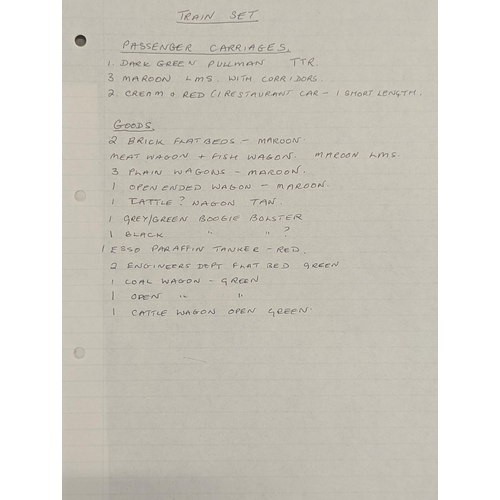 TRAIN SET
PASSENGER CARRIAGES.
1. DARK GREEN PULLMAN TTR.
3 MAROON LMS. WITH CORRIDORS.
2. CREAM & RED (1 RESTAURANT CAR - 1 SHORT LENGTH.
GOODS.
2 BRICK FLATBEDS - MAROON.
MEAT WAGON + FISH WAGON. MAROON LMS.
3 PLAIN WAGONS - MAROON.
1 OPEN ENDED WAGON - MAROON.
1 CATTLE? WAGON TAN.
1 GREY/GREEN BOOGIE BOLSTER
1 BLACK " " ?
1 ESSO PARAFFIN TANKER - RED.
2 ENGINEERS DEPT FLAT BED GREEN
1 COAL WAGON - GREEN
1 OPEN " "
1 CATTLE WAGON OPEN GREEN.